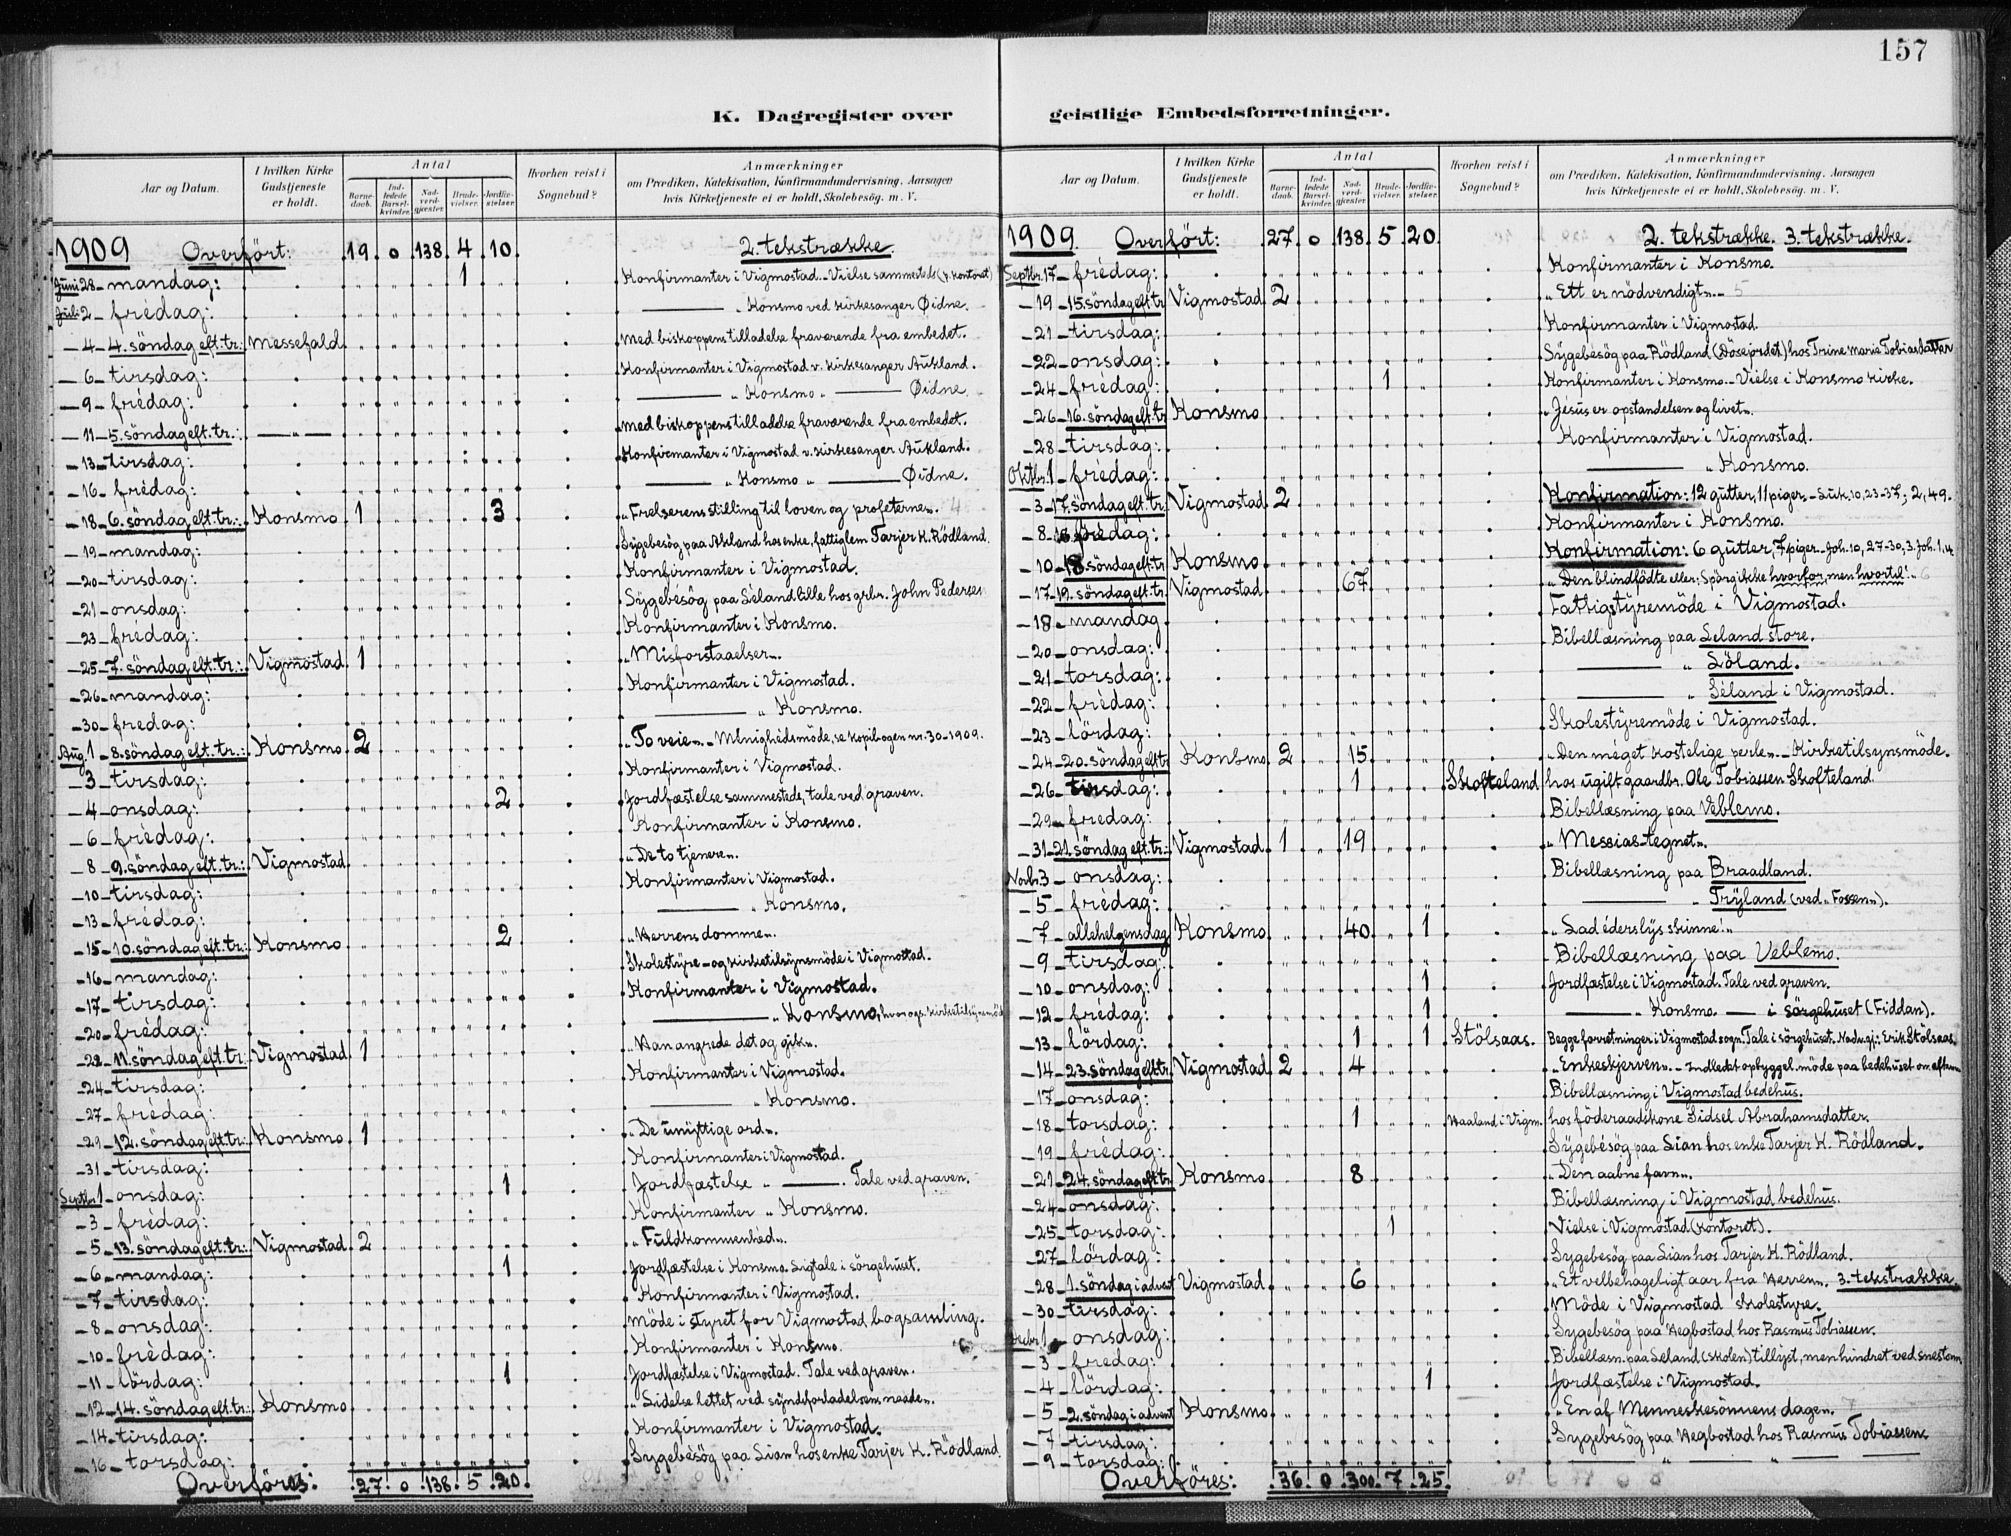 157
K. Dagregister over geistlige Embedsforretninger.
Aar og Datum.
I hvilken Kirke Gudstjeneste er holdt.
Antal
Barne-daab.
Ind-ledede Barsel-kvinder.
Nad-verd-gjæster.
Brude-vielser.
Jordfæ-stelser.
Hvorhen reist i Sognebud?
Anmærkninger
om Prædiken, Katekisation, Konfirmandundervisning. Aarsagen
hvis Kirketjeneste ei er holdt, Skolebesøg. m. V.
1909 Overført: 19 0 138 4 10 2. tekstrække.
Juni 28 - mandag: 1 Konfirmanter i Vigmostad. - Vielse sammesteds (p. kontoret)
Juli 2 - frédag: — „ Konsmo ved kirkesanger Øidne.
- 4 - 4. söndag eft. tr.: Messefald. Med biskoppens tilladelse fraværende fra embedet.
- 6 - tirsdag: Konfirmanter i Vigmostad v. kirkesanger Aukland.
- 9 - frédag: — „ Konsmo „ — Øidne.
- 11 - 5. söndag eft. tr.: — „ — Med biskoppens tilladelse fraværende fra embedet.
- 13 - tirsdag: Konfirmanter i Vigmostad v. kirkesanger Aukland.
- 16 - frédag: — „ Konsmo „ — Øidne.
- 18 - 6. söndag eft. tr.: Konsmo 1 3 „Frelserens stilling til loven og profeterne". 4
- 19 - mandag: Sygebesög paa Askland hos enke, fattiglem Tarjer K. Rödland.
- 20 - tirsdag: Konfirmanter i Vigmostad.
- 21 - onsdag: Sygebesög paa Séland lille hos grbr. John Pedersen
- 23 - frédag: Konfirmanter i Konsmo.
- 25 - 7. söndag eft. tr.: Vigmostad 1 „Misforstaaelser".
- 26 - mandag: Konfirmanter i Vigmostad.
- 30 - fredag: — „ Konsmo.
Aug. 1 - 8. söndag eft. tr.: Konsmo 2 „To veie". - Menighédsmöde, se kopibogen nr. 30 - 1909.
- 3 - tirsdag: Konfirmanter i Vigmostad.
- 4 - onsdag: 2 Jordfæstelse sammesteds, tale ved graven.
- 6 - frédag: Konfirmanter i Konsmo.
- 8 - 9. söndag eft. tr.: Vigmostad „De to tjenere".
- 10 - tirsdag: Konfirmanter i Vigmostad.
- 13 - frédag: — „ Konsmo.
- 15 - 10. söndag eft. tr.: Konsmo 2 „Herrens domme".
- 16 - mandag: Skolestyre- og kirketilsynsmöde i Vigmostad.
- 17 - tirsdag: Konfirmanter i Vigmostad.
- 20 - frédag: — „ Konsmo, hvor ogs. kirketilsynsmöde
- 22 - 11. söndag eft. tr.: Vigmostad 1 „Han angrede det og gik".
- 24 - tirsdag: Konfirmanter i Vigmostad.
- 27 - frédag: — „ Konsmo.
- 29 - 12. söndag eft. tr.: Konsmo 1 „De unyttige ord".
- 31 - tirsdag: Konfirmanter i Vigmostad.
Septbr. 1 - onsdag: 1 Jordfæstelse „ — . Tale ved graven.
- 3 - frédag: Konfirmanter „ Konsmo.
- 5 - 13. söndag eft. tr.: Vigmostad 2 „Fuldkommenhéd".
- 6 - mandag: 1 Jordfæstelse i Konsmo. Ligtale i sörgehuset.
- 7 - tirsdag: Konfirmanter i Vigmostad.
- 8 - onsdag: Möde i styret for Vigmostad bogsamling.
- 10 - frédag: Konfirmanter i Konsmo.
- 11 - lördag: 1 Jordfæstelse i Vigmostad. Tale ved graven.
- 12 - 14. söndag eft. tr.: Konsmo „Lidelse lettet ved syndsforladelsens naade".
- 14 - tirsdag: Konfirmanter i Vigmostad.
- 16 - torsdag: Sygebésög paa Lian hos enke Tarjer K. Rödland
Overföres: 27 0 138 5 20
Aar og Datum.
I hvilken Kirke Gudstjeneste er holdt.
Antal
Barne-daab.
Ind-ledede Barsel-kvinder.
Nad-verd-gjæster.
Brude-vielser.
Jordfæ-stelser.
Hvorhen reist i Sognebud?
Anmærkninger
om Prædiken, Katekisation, Konfirmandundervisning. Aarsagen
hvis Kirketjeneste ei er holdt, Skolebesøg. m. V.
1909. Overført: 27 0 138 5 20 2. tekstrække. 3. tekstrække.
Septbr. 17 - frédag: Konfirmanter i Konsmo.
- 19 - 15. söndag eft. tr. Vigmostad 2 „Ett er nödvendigt". - 5
- 21 - tirsdag: Konfirmanter i Vigmostad.
- 22 - onsdag: Sygebesög paa Rödland (Dösejordet) hos Trine Marie Tobiasdatter
- 24 - frédag: 1 Konfirmanter i Konsmo. - Vielse i Konsmo kirke.
- 26 - 16. söndag eft. tr. Konsmo „Jésus er opstandelsen og livet".
- 28 - tirsdag: Konfirmanter i Vigmostad.
Oktbr. 1 - frédag: — „ Konsmo.
- 3 - 17. söndag eft. tr. Vigmostad 2 Konfirmation: 12 gutter, 11 piger. - Luk. 10, 23-37; 2, 49.
- 8 - frédag: Konfirmanter i Konsmo.
- 10 - 18. söndag eft. tr. Konsmo Konfirmation: 6 gutter, 7 piger. - Joh. 10, 27-30, 3. Joh. 1, 4
- 17 - 19. söndag eft. tr. Vigmostad 67 „Den blindfödte eller: Spörg ikke hvorfor, men hvortil!" 6
- 18 - mandag Fattigstyremöde i Vigmostad.
- 20 - onsdag: Bibellæsning paa Séland store.
- 21 - torsdag: — „ Löland.
- 22 - frédag: — „ Séland i Vigmostad.
- 23 - lördag: Skolestyremöde i Vigmostad.
- 24 - 20. söndag eft. tr Konsmo 2 15 „Den meget kostelige perle". - Kirketilsynsmöde.
- 26 - tirsdag: 1 Skofteland hos ugift gaardbr. Ole Tobiassen Skofteland.
- 29 - fredag: Bibellæsning paa Veblemo.
- 31 - 21. söndag eft. tr.: Vigmostad 1 19 „Messias-tegnet".
Novbr. 3 - onsdag: Bibellæsning paa Braadland.
- 5 - frédag: — „ Tryland (ved „Fossen").
- 7 - allehelgensdag Konsmo 40 1 „Lad éders lys skinne!"
- 9 - tirsdag: Bibellæsning paa Veblemo.
- 10 - onsdag: 1 Jordfæstelse i Vigmostad. Tale ved graven.
- 12 - frédag: 1 — „ Konsmo. — i sörgehuset (Fiddan).
- 13 - lördag: 1 1 Stölsaas. Begge forretninger i Vigmostad sogn. Tale i sörgehuset. Nadvgj.: Erik Stölsaas.
- 14 - 23. söndag eft. tr. Vigmostad 2 4 „Enkeskjerven". - Indledet opbyggel. möde paa bedehuset om eftern
- 17 - onsdag: Bibellæsning i Vigmostad bedehus.
- 18 - torsdag: 1 Haaland i Vigm. hos föderaadskone Sidsel Abrahamsdatter.
- 19 - frédag: Sygebésög paa Lian hos enke Tarjer K. Rödland.
- 21 - 24. söndag eft. tr. Konsmo 8 „Den aabne favn".
- 24 - onsdag: Bibellæsning i Vigmostad bedehus.
- 25 - torsdag: 1 Vielse i Vigmostad (kontoret).
- 27 - lördag: Sygebésög paa Lian hos Tarjer K. Rödland.
- 28 - 1. söndag i advent Vigmostad 6 „Et velbehageligt aar fra Herren". 3. tekstrække.
- 30 - tirsdag: Möde i Vigmostad skolestyre.
Decbr. 1 - onsdag: Sygebesög paa Hegbostad hos Rasmus Tobiassen.
- 3 - fredag: Bibellæsn. paa Séland (skolen) tillyst, men hindret ved snestorm.
- 4 - lördag: 1 Jordfæstelse i Vigmostad.
- 5 - 2. söndag i advent Konsmo „En af Menneskesönnens dage". 7
- 7 - tirsdag: Sygebesög paa Hegbostad hos Rasmus Tobiassen.
- 9 - torsdag: — „ — „ —
Overföres: 36 0 300 7 25